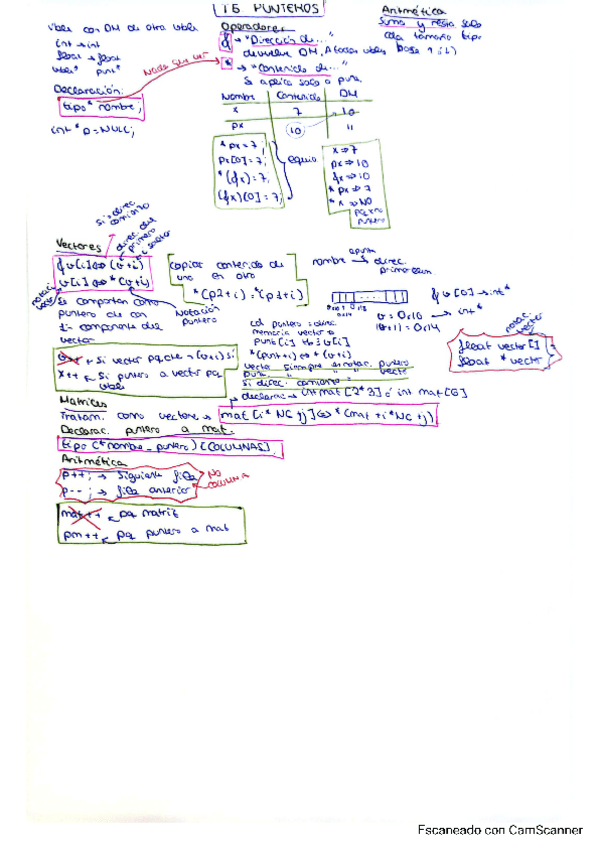 T5 PUNTEROS
Vble con DM de otra vble
int → int
float → float
vble* punt*
Nada que ver
Declaración:
tipo* nombre;
int * p = NULL;
Operadores
& → "Dirección de..."
devuelve DM, A todas vbles,
* → "Contenido de..."
Se aplica solo a punt.
Nombre Contenido DM
x 7 10
px 10 11
*px = 7;
px[0] = 7;
*(&x) = 7;
(&x)[0] = 7;
equiv
x ⇒ 7
px ⇒ 10
&x ⇒ 10
*px ⇒ 7
*x ⇒ NO
pq x no
puntero
Aritmética
Suma y resta solo
cada tamaño tipo
base 1
Vectores
Si → direc.
comienzo
direc. del
primero
&v[i] ⇔ (v+i)
v[i] ⇔ *(v+i)
Notación
puntero
Se comportan como
puntero de con
componente del
vector
Si vector pq che → (v+i) Sí
x++ ← Si puntero a vector pq
vble
Copiar contenido de
uno en otro
*(p2+i) = *(p1+i)
cd puntero = direc.
memoria vector ⇒
punt[i] ⇔ v[i]
*(punt+i) ⇔ *(v+i)
vector siempre notac. puntero
punt. " " vector
Si direc. comienzo =
apunta
nombre → direc.
primer elem.
v = 0x10
(v+1) = 0x14
&v[0] → int*
→ int*
notac.
vector
float vector[]
float * vector
Matrices
→ declarac → int mat[2*3] ó int mat[6]
Tratam. como vectores → mat[i*NC+j] ⇔ *(mat+i*NC+j)
Declarac. puntero a mat.
tipo (*nombre_puntero)[COLUMNAS]
Aritmética
p++; → siguiente fila
p--; → fila anterior
NO
COLUMNA
mat++ ← pq matriz
pm++ ← pq puntero a mat
Escaneado con CamScanner